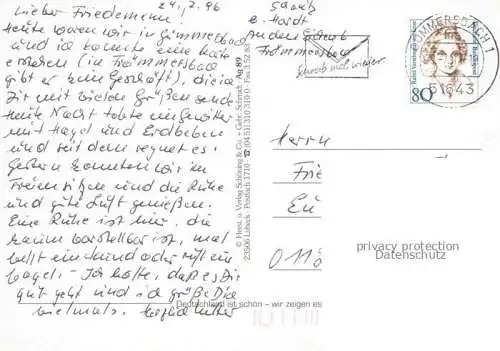 24.7.96
Lieber Friedemann!
Heute waren wir in Gummersbach
und ich konnte eine Karte
(in Frömmersbach
gibt es kein Geschäft), die ich
Dir mit vielen Grüßen sende
Heute Nacht tobte ein Gewitter
mit Hagel und Erdbeben
und seit dem regnet es.
Gestern konnten wir im
Freien sitzen und die Ruhe
und gute Luft genießen.
Eine Ruhe ist hier, die
kaum vorstellbar ist, mal
bellt ein Hund oder ruft ein
Vogel. - Ich hoffe, daß es Dir
gut geht und ich grüße Dich
vielmals.
b. Hardt
Frömmersbach
Schreib mal wieder
GUMMERSBACH 1
51643
80
© Horst. u. Verlag Schöning & Co. + Gebr. Schmidt Ag 89
23506 Lübeck · Postfach 1710 · ☎ (04 51) 310 310 · Fax 5 52 83
Herrn
Frie
Eu
privacy protection
Datenschutz
Deutschland ist schön – wir zeigen es